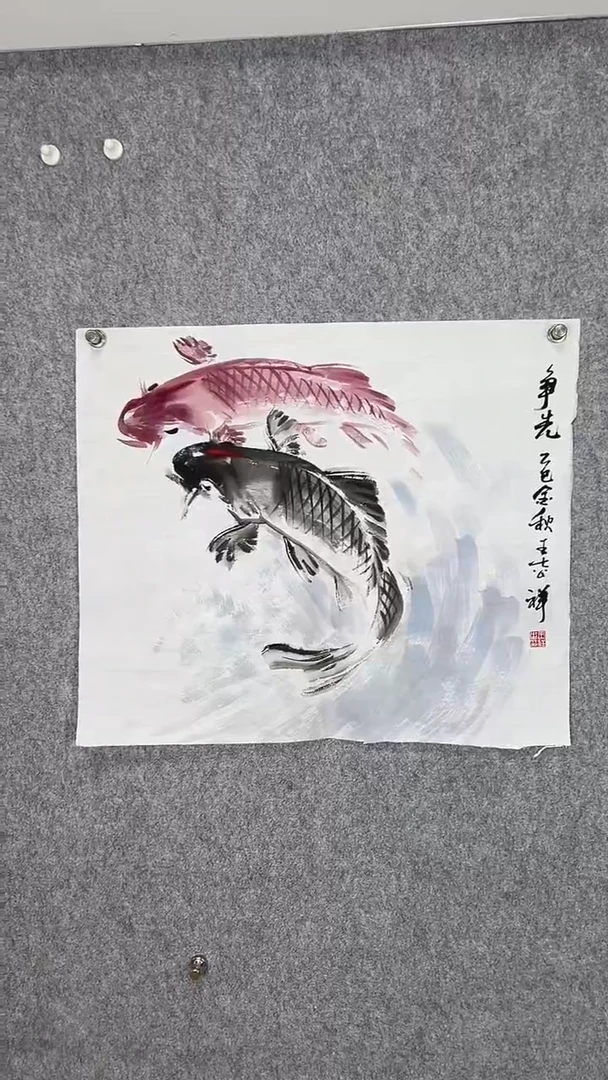 争先
乙巳金秋 王志祥